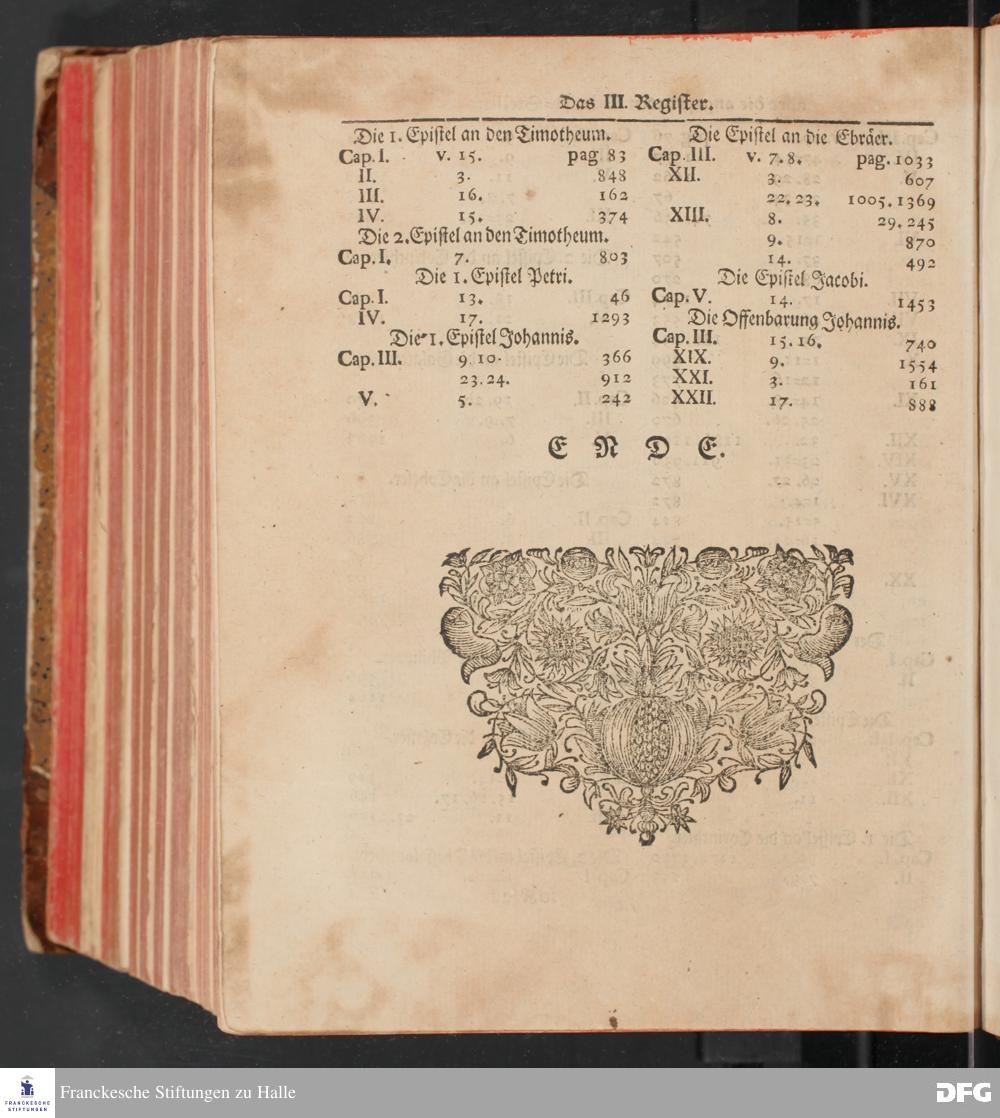 Das III. Register.
Die 1. Epistel an den Timotheum.
Cap. I. v. 15. pag. 83
II. 3. 848
III. 16. 162
IV. 15. 374
Die 2. Epistel an den Timotheum.
Cap. I. 7. 803
Die 1. Epistel Petri.
Cap. I. 13. 46
IV. 17. 1293
Die 1. Epistel Johannis.
Cap. III. 9. 10. 366
23. 24. 912
V. 5. 242
Die Epistel an die Ebräer.
Cap. III. v. 7. 8. pag. 1033
XII. 3. 607
22. 23. 1005. 1369
XIII. 8. 29. 245
9. 870
14. 492
Die Epistel Jacobi.
Cap. V. 14. 1453
Die Offenbarung Johannis.
Cap. III. 15. 16. 740
XIX. 9. 1554
XXI. 3. 161
XXII. 17. 888
E N D E.
FRANCKESCHE
STIFTUNGEN
Franckesche Stiftungen zu Halle
DFG